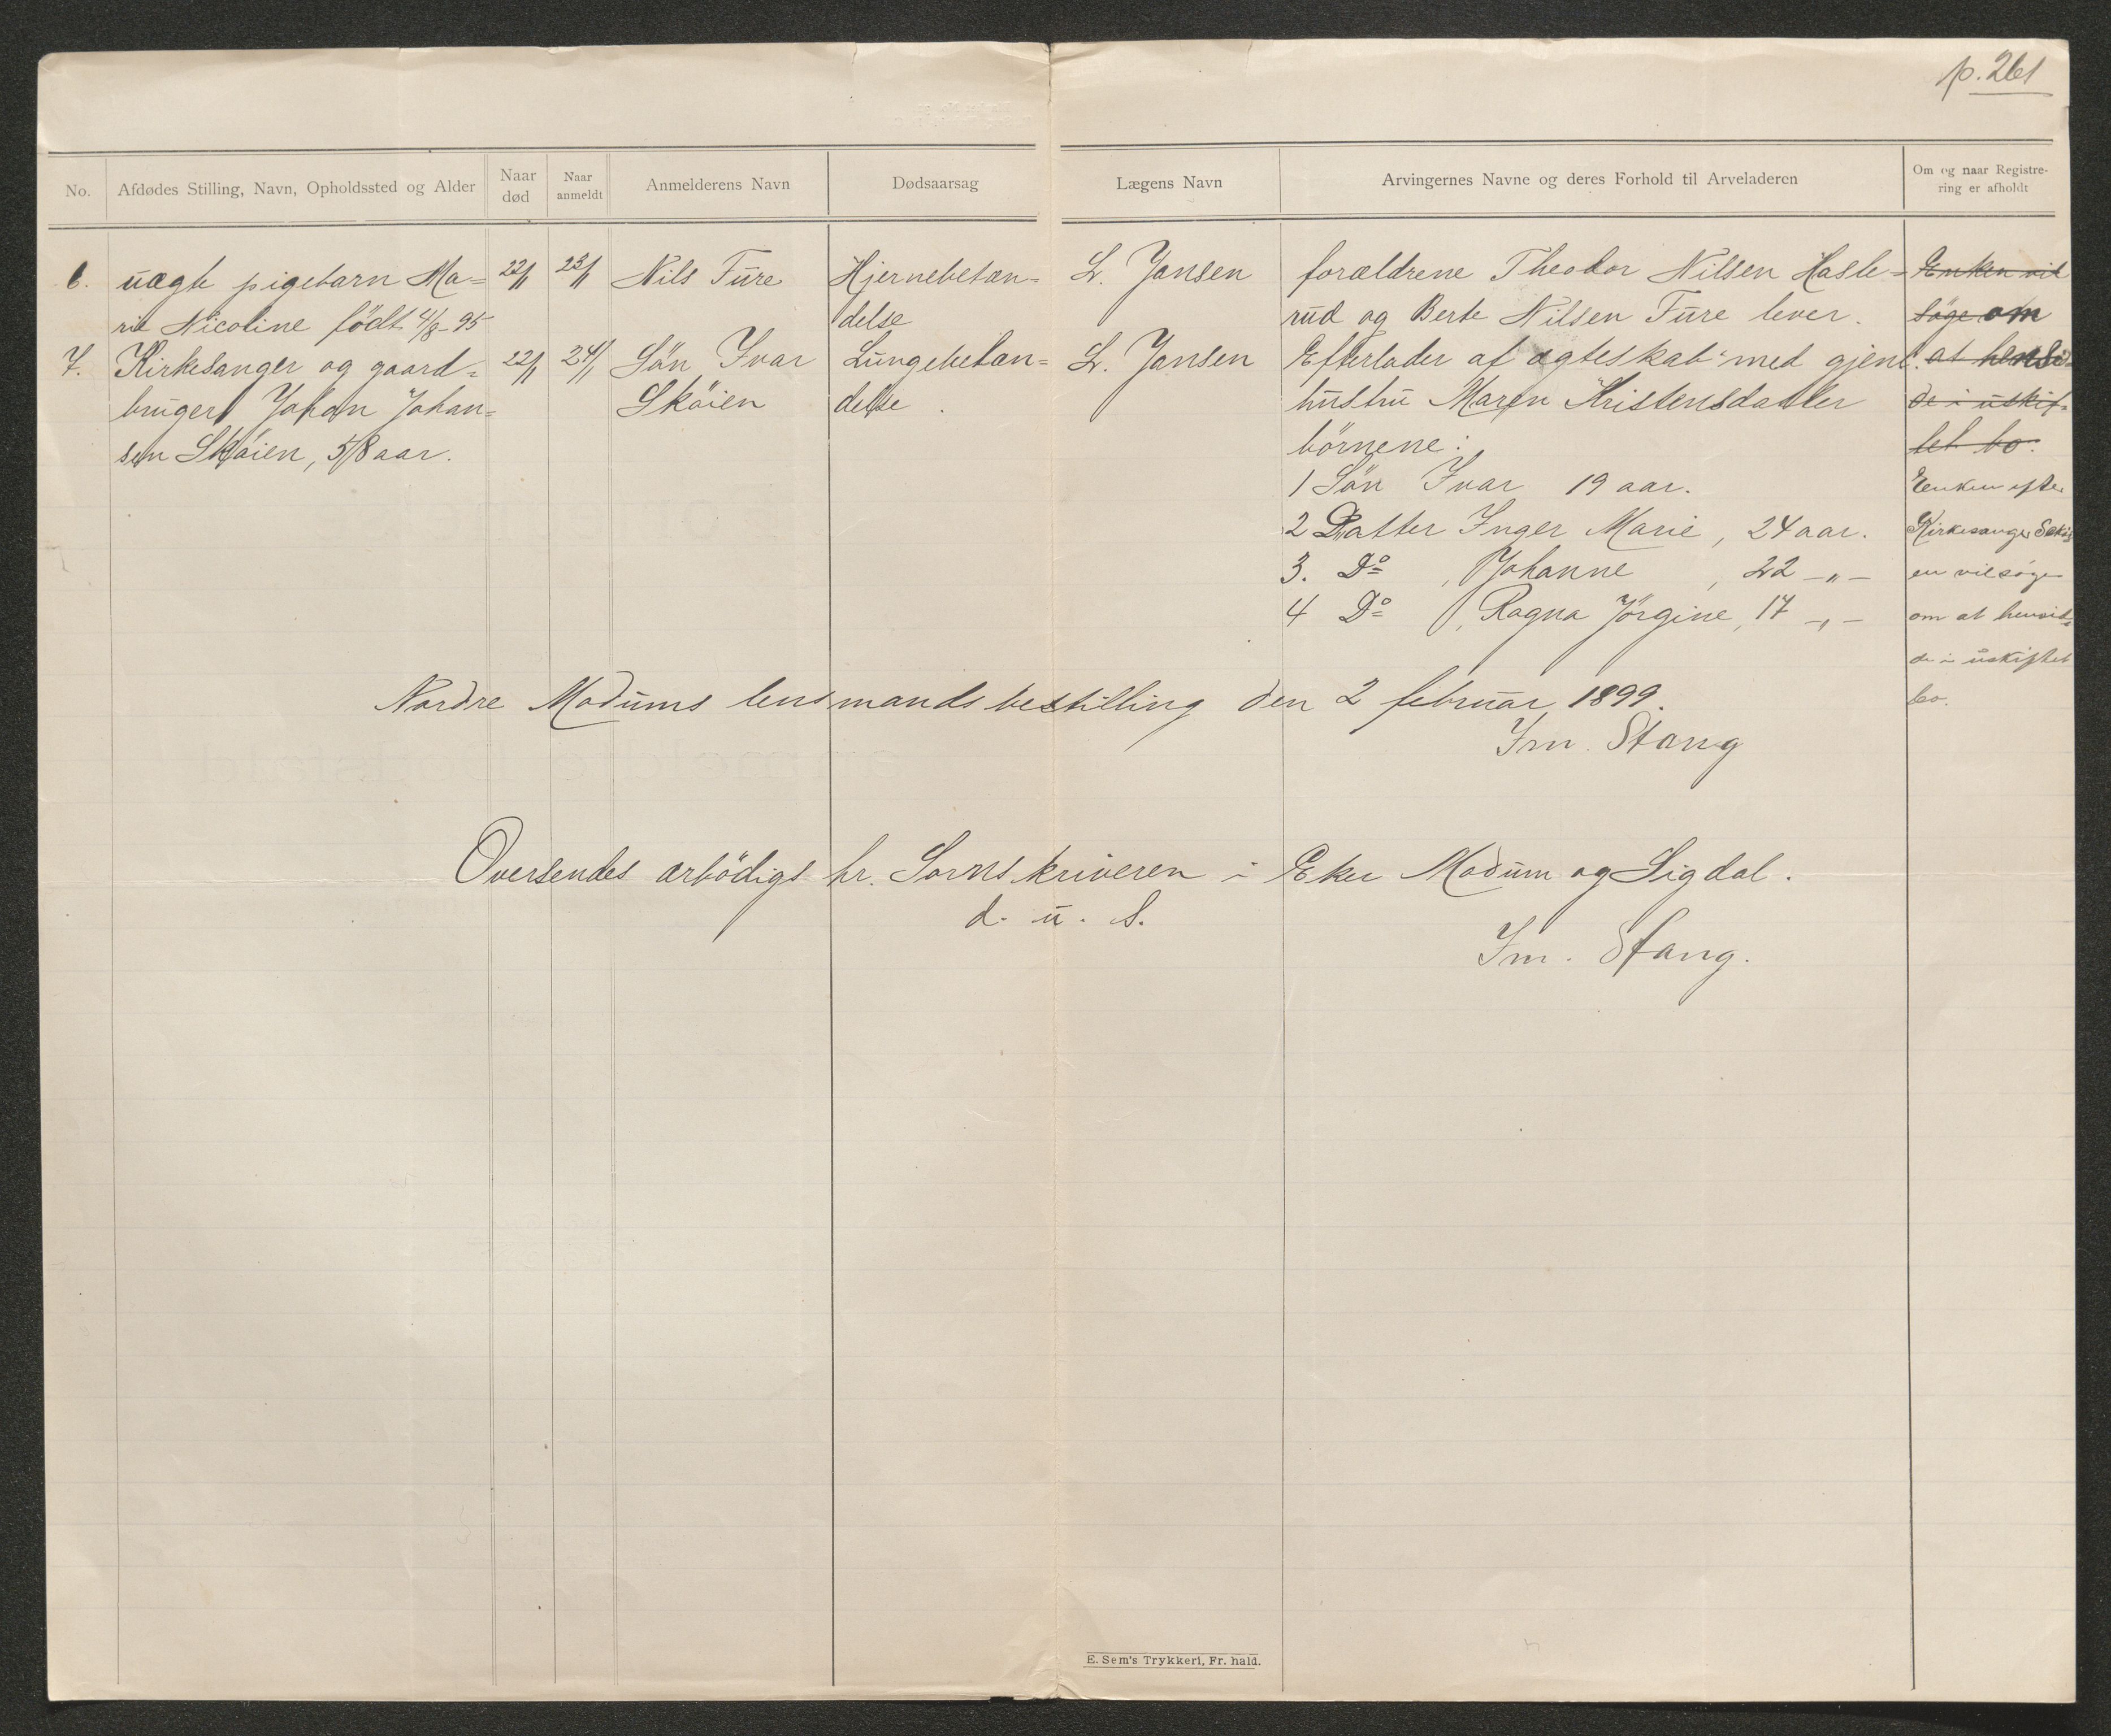 p. 261
No.
Afdødes Stilling, Navn, Opholdssted og Alder
Naar død
Naar anmeldt
Anmelderens Navn
Dødsaarsag
Lægens Navn
Arvingernes Navne og deres Forhold til Arveladeren
Om og naar Registre-
ring er afholdt
6. uægte pigebarn Ma= 22/1 23/1 Nils Fure Hjernebetæn= L. Jansen forældrene Theodor Nilsen Hasle=
rie Nicoline födt 4/8-95 delse rud og Berte Nilsen Fure lever.
7. Kirkesanger og gaard= 22/1 24/1 Sön Ivar Lungebetæn= L. Jansen Efterlader af ægteskab med gjenl.
bruger Johan Johan= Sköien delse. hustru Maren Kristensdatter
sen Sköien, 58 aar. börnene:
1 Sön Ivar 19 aar.
2 Datter Inger Marie, 24 aar.
3. Do , Johanne , 22 -"-
4 Do , Ragna Jörgine, 17 -"-
Enken vil
söge om
at hensid=
de i uskif=
tet bo.
Enken efter
Kirkesanger Sköi
en vil söge
om at hensid=
de i uskiftet
bo.
Nordre Modums lensmandsbestilling den 2 februar 1899.
Im. Stang
Oversendes ærbödigst hr. Sorenskriveren i Eker Modum og Sigdal.
d. u. S.
Im. Stang.
E. Sem's Trykkeri, Fr. hald.